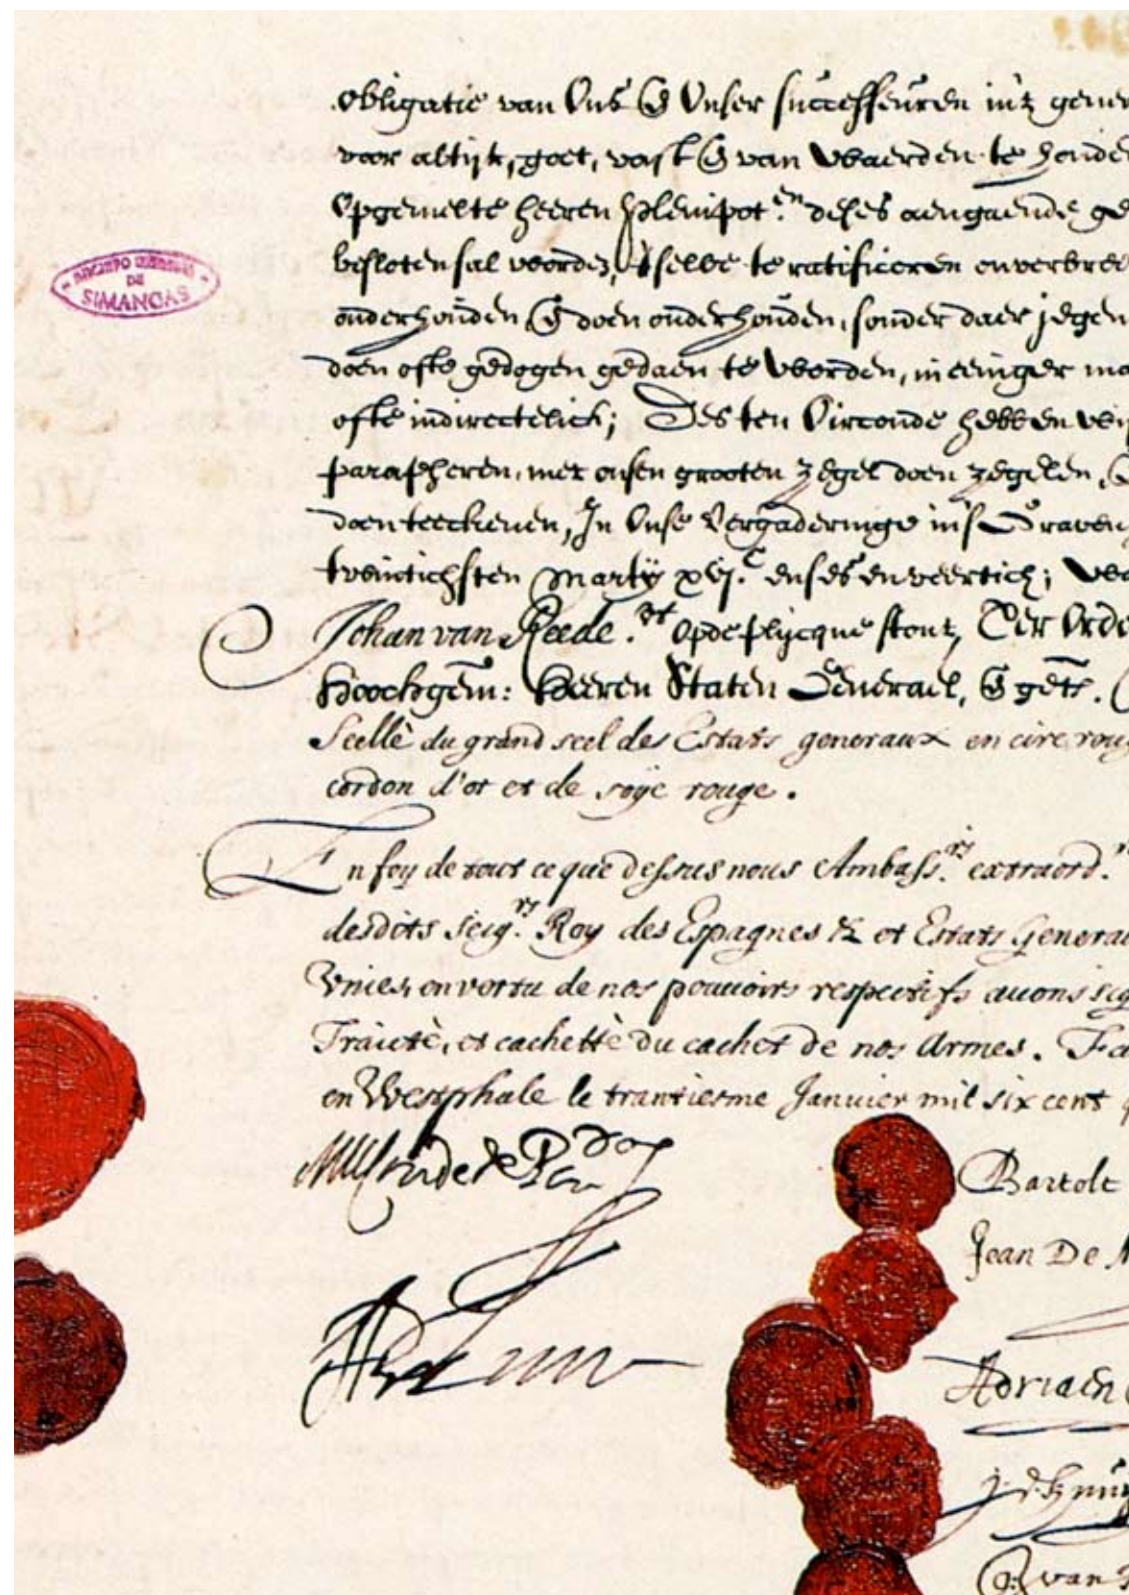 obligatie van Ons & Onser successeuren in't gener
voor altijt, goet, vast & van waerden te honden
Opgemelte heeren Plenipot.en deses aengaende ge
besloten sal worden, 'tselve te ratificeren onverbree
onderhouden, & doen onderhouden, sonder daer jegen
doen ofte gedogen gedaen te worden, in eeniger ma
ofte indirectelick; Des ten Oirconde hebben wij
parapheren, met onsen grooten zegel doen zegelen, &
doen teeckenen, In Onse Vergaderinge in's Graven
twintichsten Martij xvj.c en ses en veertich; wa
Johan van Reede. vt Op de plijcque stont, Ter Orde
Hoochgem: Heeren Staten Generael, & get.
Scellé du grand scel des Estats generaux en cire roug
cordon d'or et de soye rouge.
En foy de tout ce que dessus nous Ambass.rs extraord.
desdits seig.rs Roy des Espagnes & et Estats Genera
Vnies, en vertu de nos pouuoirs respectifs auons sig
Traicté, et cachetté du cachet de nos Armes. Fa
en Westphale le trantiesme Januier mil six cent q
Bartolt
Jean De M
Adriaen
van
ARCHIVO GENERAL
DE
SIMANCAS